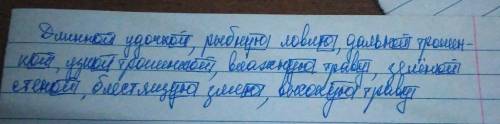 Длинной удочкой, рыбную ловлю, дальной тропин-
кой, узкой тропинкой, влажную траву, зелёной
стеной, блестящую змею, высокую траву